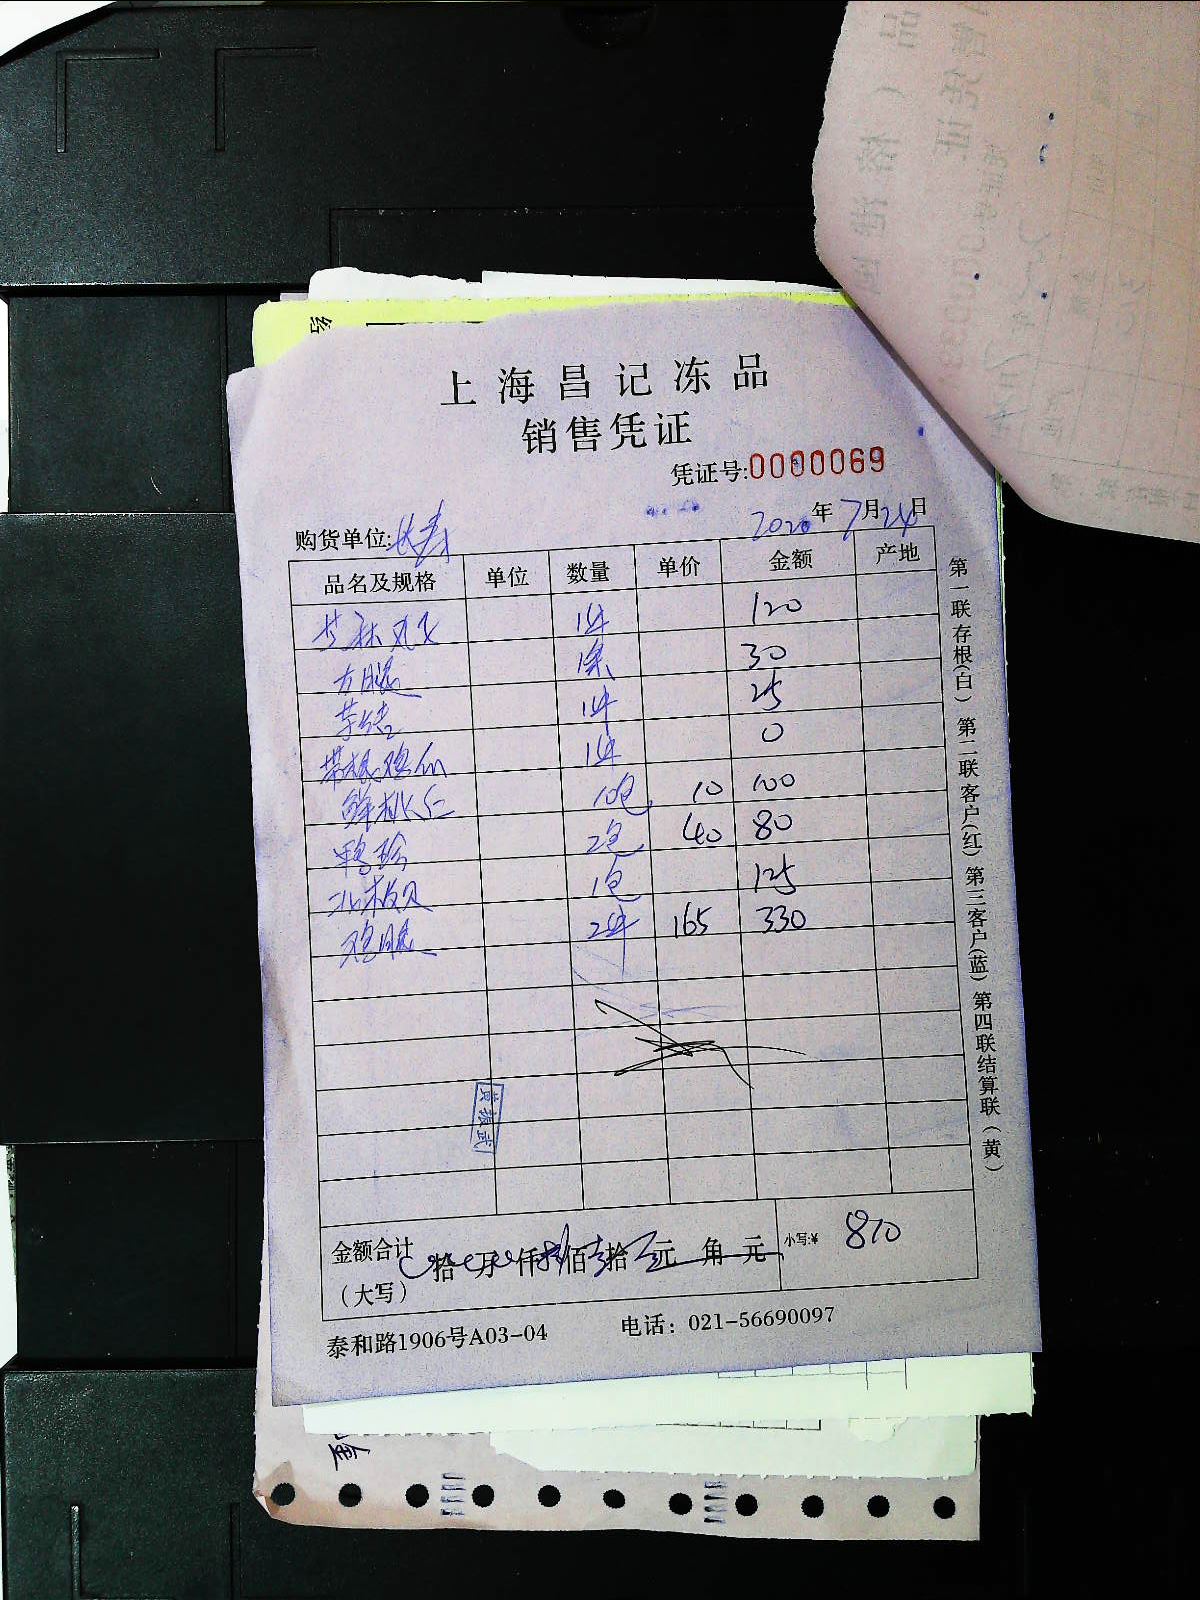 上海昌记冻品
销售凭证
凭证号:0000069
购货单位:长寿 2020年7月24日
品名及规格 单位 数量 单价 金额 产地
1件 120
方腿 1条 30
芋结 1件 25
带根 1件 0
鲜桃仁 10包 10 100
鸭珍 2包 40 80
北极贝 1包 125
鸡腿 2件 165 330
金额合计 拾 万 仟 捌佰壹拾 元 角 元 小写:¥ 810
（大写）
泰和路1906号A03-04 电话：021-56690097
第一联存根(白) 第二联客户(红) 第三客户(蓝) 第四联结算联(黄)